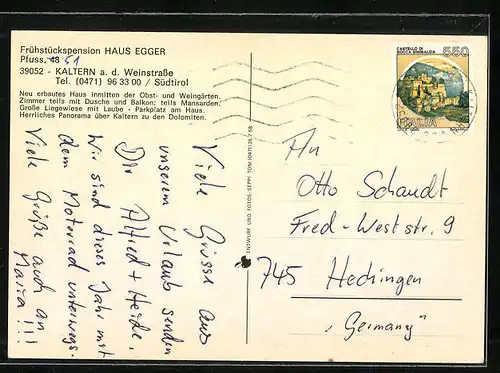 Frühstückspension HAUS EGGER
Pfuss, 48 51
39052 - KALTERN a. d. Weinstraße
Tel. (0471) 96 33 00 / Südtirol
Neu erbautes Haus inmitten der Obst- und Weingärten.
Zimmer teils mit Dusche und Balkon; teils Mansarden.
Große Liegewiese mit Laube - Parkplatz am Haus.
Herrliches Panorama über Kaltern zu den Dolomiten.
Viele Grüsse aus
unserem Urlaub senden
Dir Alfred + Heide.
Wir sind dieses Jahr mit
dem Motorrad unterwegs.
Viele Grüße auch an
Maria!!!
ENTWURF UND FOTOS: SEPPI TONI (0471)
CASTELLO DI
ROCCA SINIBALDA
550
ITALIA
An
Otto Schandt
Fred-Weststr. 9
745 Hechingen
"Germany"